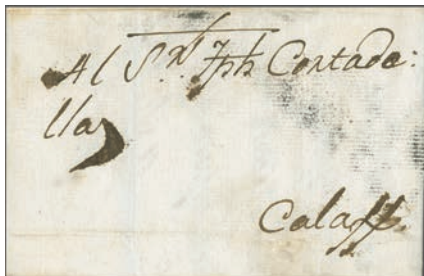 Al Sr. Jph Cortada:
llas
Calaff.